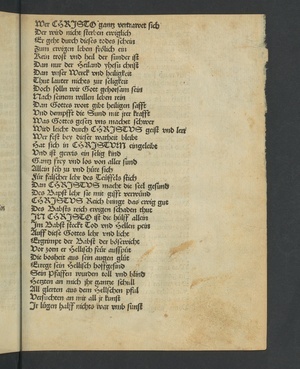 Wer CHRISTO gantz vertrawet sich
Der wird nicht sterben ewiglich
Er geht durch dieses todes schein
Zum ewigen leben frölich ein
Kein trost und heil der sunder ist
Dan nur der Heiland Jhesu christ
Dan unser Werck und heilikeit
Thut lauter nichts zur seligkeit
Doch sölln wir Gott gehorsam sein
Nach seinem willen leben rein
Dan Gottes wort gibt heiligen safft
Und dempfft die Sund mit jrer krafft
Was Gottes gesetz uns machet schwer
Wird leicht durch CHRISTUS geist und leer
Wer fest bey dieser warheit bleibt
Hat sich in CHRISTUM eingeleibt
Und ist gewis ein selig kind
Gantz frey und los von aller sund
Allein seh zu und hüte sich
Für falscher lehr des Teüffels stich
Dan CHRISTUS macht die seel gesund
Des Bapst lehr sie mit gifft verwundt
CHRISTUS Reich bringt das ewig gut
Des Babsts reich ewigen schaden thut
IN CHRISTO ist die hülff allein
Im Babst steckt Tod und Hellen pein
Auff diese Gottes lehr und licht
Ergrimpt der Babst der böswicht
Vor zorn er Hellisch feür ausspüt
Die bosheit aus sein augen glüt
Erregt sein Hellisch hoffgesind
Sein Pfaffen wurden toll und blind
Hetzten an mich jhr gantze schull
All glerten aus dem Hellschen pful
Versuchten an mit all jr kunst
Jr lügen halff nichts war umb sunst